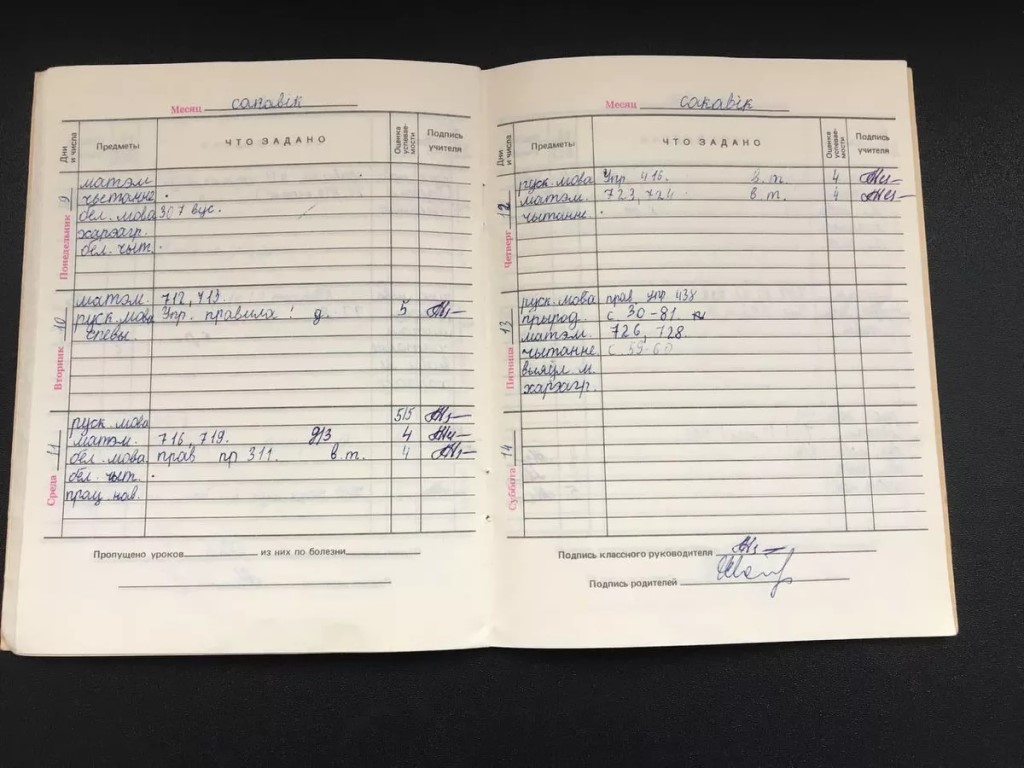 Месяц сакавік
Дни и числа Предметы ЧТО ЗАДАНО Оценка успеваемости Подпись учителя
Понедельник 9
матэм.
чытанне.
бел. мова 307 вус.
харэагр.
бел. чыт.
Вторник 10
матэм. 712, 713.
руск. мова Упр. правила! д. 5
спевы.
Среда 11
руск. мова 5/5
матэм. 716, 719. д/з 4
бел. мова прав пр 311. в.т. 4
бел. чыт.
прац. нав.
Пропущено уроков из них по болезни
Месяц сакавік
Дни и числа Предметы ЧТО ЗАДАНО Оценка успеваемости Подпись учителя
Четверг 12
руск. мова Упр. 416. в.т. 4
матэм. 723, 724 в.т. 4
чытанне.
Пятница 13
руск. мова прав упр 438
прырод. с. 30-81.
матэм. 726, 728.
чытанне с. 59-60
выяўл м.
харэагр.
Суббота 14
Подпись классного руководителя
Подпись родителей